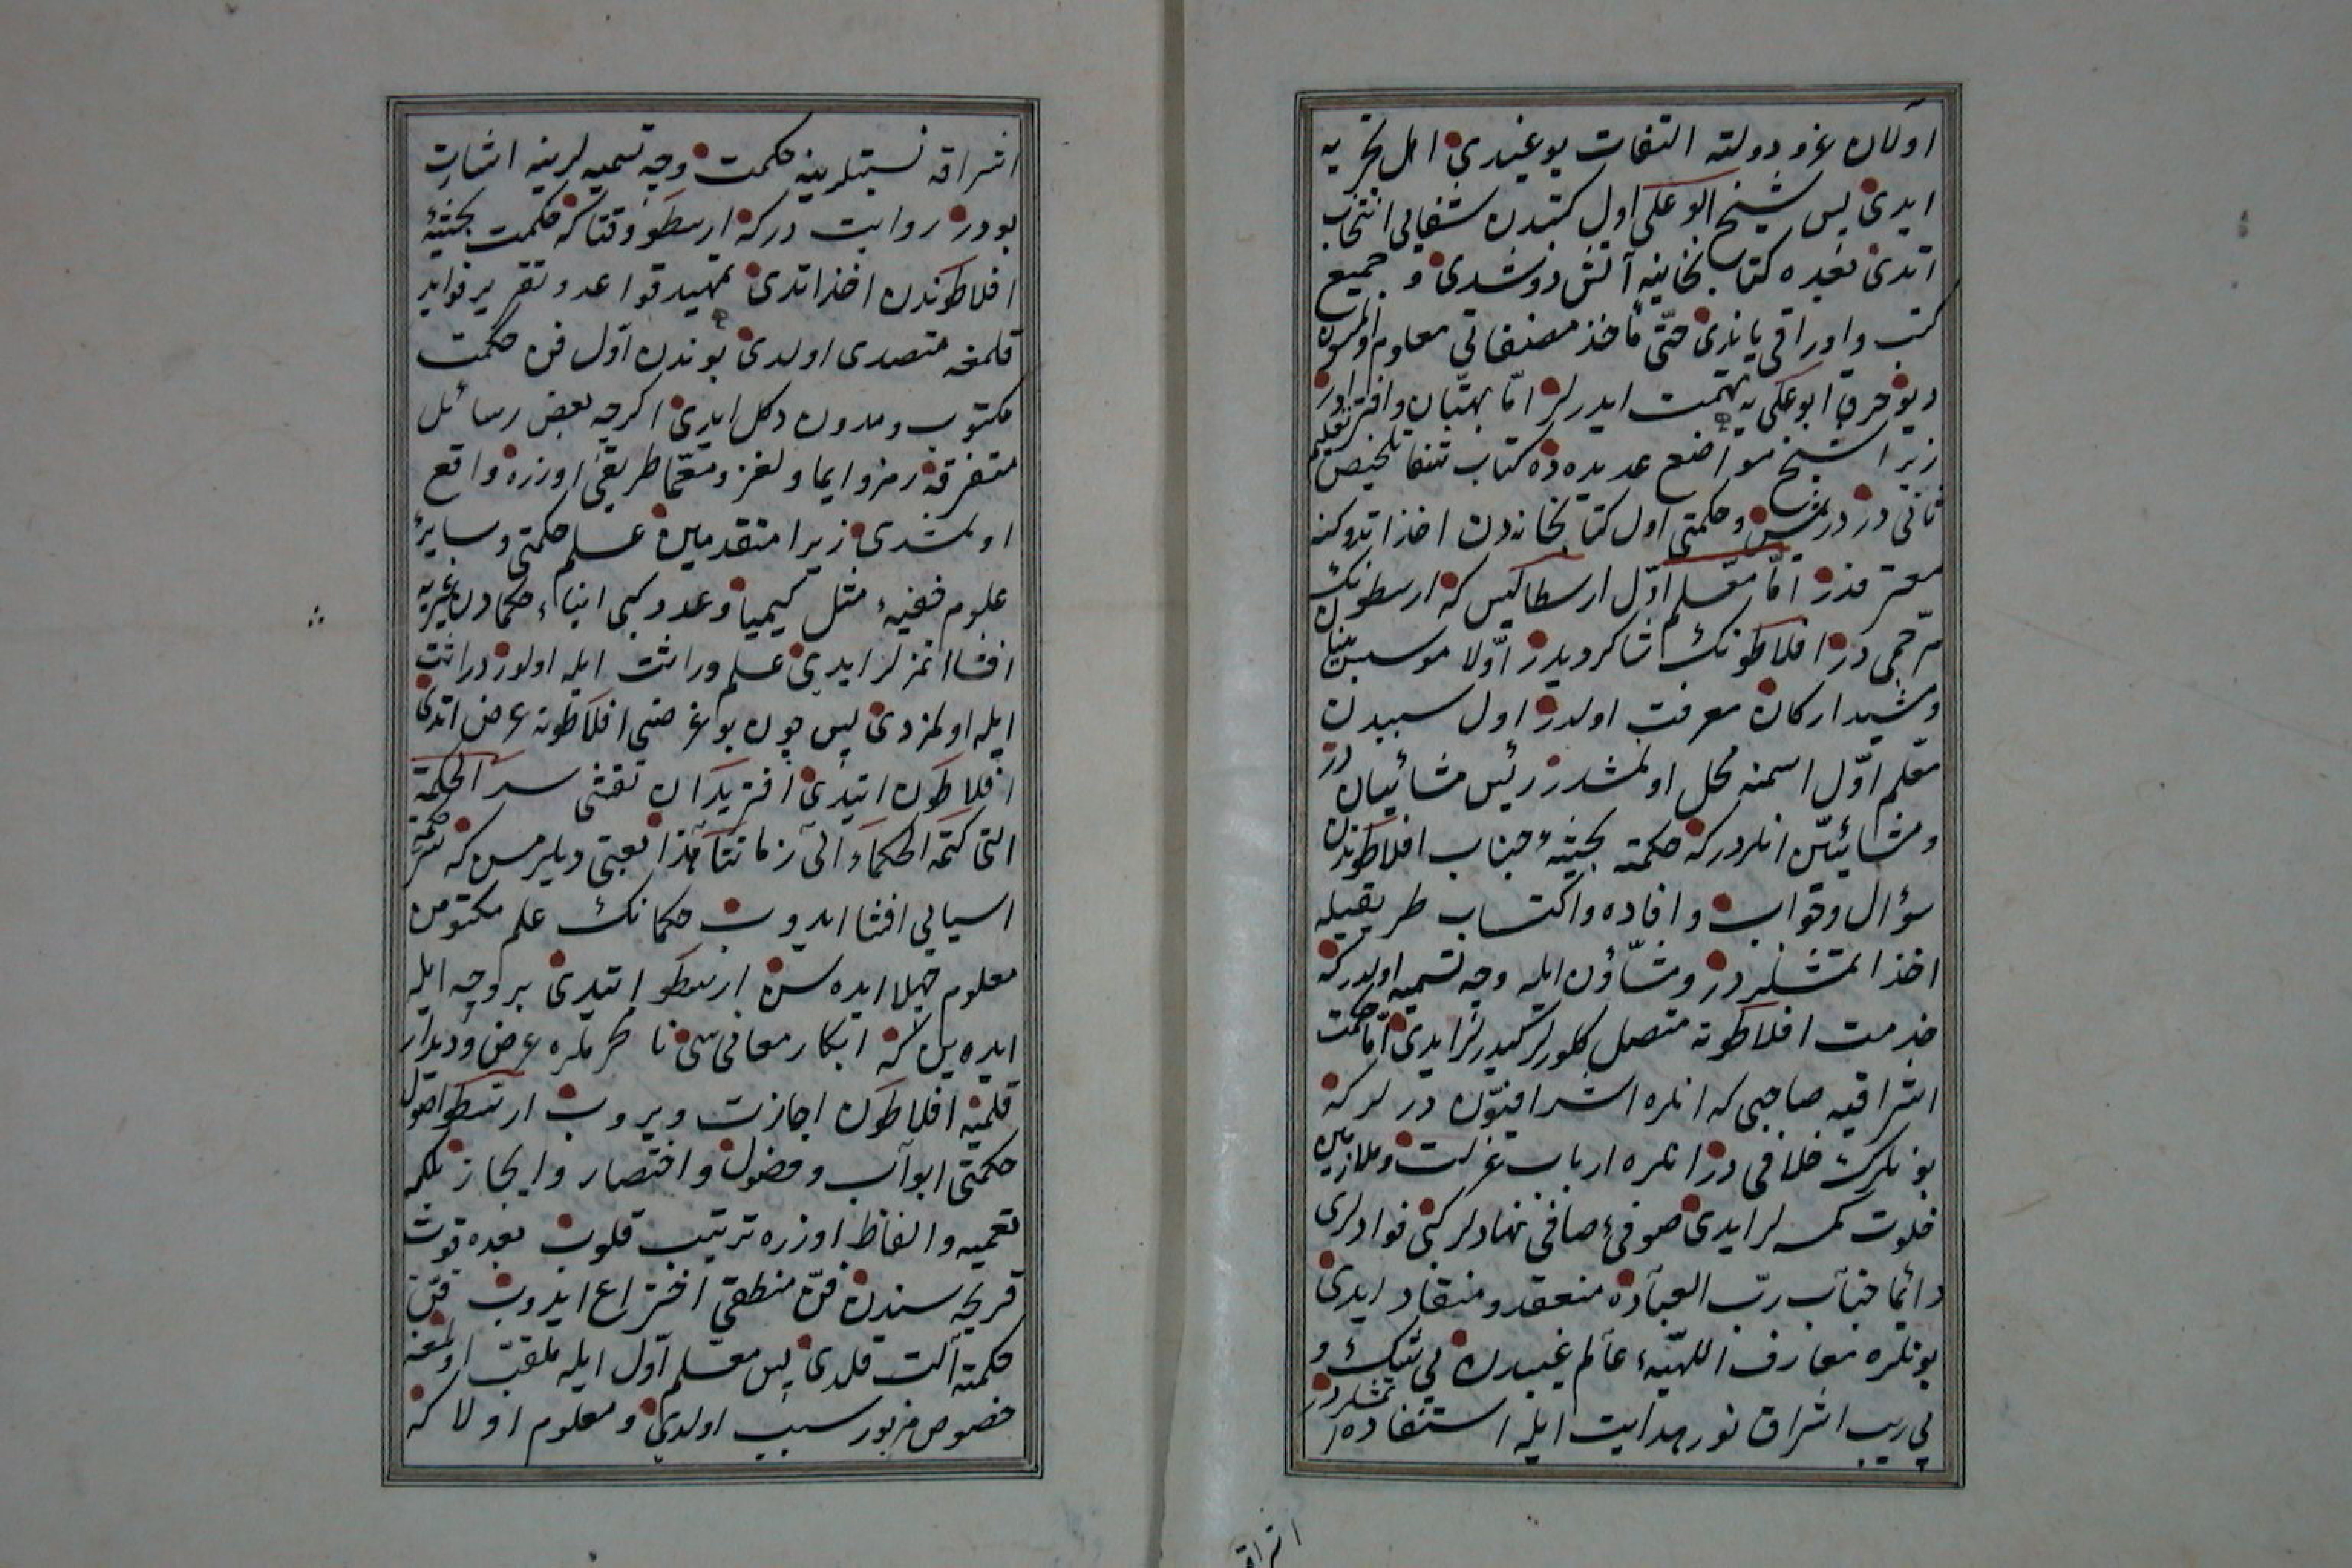 اولان عز و دولته التفات یوغیدی اهل تجربه
ایدی پس شیخ ابو علی اول کتبدن شفایی انتخاب
اتدی بعده کتابخانیه آتش دوشدی و جمیع
کتب و اوراقی یاندی حتی مأخذ مصنفاتی معلوم اولمسون
دیو حرق ابو علی یه تهمت ایدرلر اما بهتان و افترادر
زیرا شیخ مواضع عدیده ده کتاب شفا تلخیص تعلیم
ثانی در دیمش و حکمتی اول کتابخانه دن اخذ اتدوکنه
معترفدر اما معلم اول ارسطالیس که ارسطونک
مرخمی در افلاطونک شاکردیدر اولا موسس بنیان
و مشید ارکان معرفت اولدر اول سبیدن
معلم اول اسمنه محل اولمشدر رئیس مشائیان در
و مشائیین انلردر که حکمته بحثیه جناب افلاطوندن
سؤال و جواب و افاده و اکتساب طریقیله
اخذ اتمشلردر و مشاؤن ایله وجه تسمیه اولدر که
خدمت افلاطونه متصل کلورلر کیدرلر ایدی اما حکمت
اشراقیه صاحبی که انلره اشراقیون درلر که
بونلرک خلافی در انلره ارباب عزلت و ملازمین
خلوت کمسه لر ایدی صوفئ صافی نهادلر کبی فوادلری
دائما جناب رب العباده منعقد و منقاد ایدی
بونلره معارف اللهیه عالم غیبدن بی شک و
بی ریب اشراق نور هدایت ایله استفاده اتمشلردر
اشراقه
اشراقه نسبتلرینه حکمت وجه تسمیه لرینه اشارت
بودر روایت درکه ارسطو وقتاکه حکمت بحثیه
افلاطوندن اخذ اتدی تمهید قواعد و تقریر فواید
قلمغه متصدی اولدی بوندن اول فن حکمت
مکتوب و مدون دکل ایدی اکرچه بعض رسائل
متفرقه رمز و ایما و لغز و معما طریقی اوزره واقع
اولمشدی زیرا متقدمین علم حکمتی و سایر
علوم خفیه مثل کیمیا و عدد کبی ابناء حکمادن غیریه
افشا اتمزلر ایدی علم وراثت ایله اولور دراثت
ایله اولمزدی پس چون بو غرضی افلاطونه عرض اتدی
افلاطون ایتدی اتریدان تفشی سر الحکمة
التی کتمه الحکماء الی زماننا هذا یعنی دیلرمسن که سر حکمة
اسیایی افشا ایدوب حکمانک علم مکتومن
معلوم جهلا ایده سن ارسطو ایتدی بر وجه ایله
ایده یم که ابکار معانی سی نا محرملره عرض دیدار
قلمیه افلاطون اجازت ویروب ارسطو اصول
حکمتی ابواب و فصول و اختصار و ایجاز بلکه
تعمیه و الفاظ اوزره ترتیب قلوب بعده قوت
قریحه سندن فن منطقی اختراع ایدوب فن
حکمته آلت قلدی پس معلم اول ایله ملقب اولمغه
خصوص مزبور سبب اولدی و معلوم اولا که